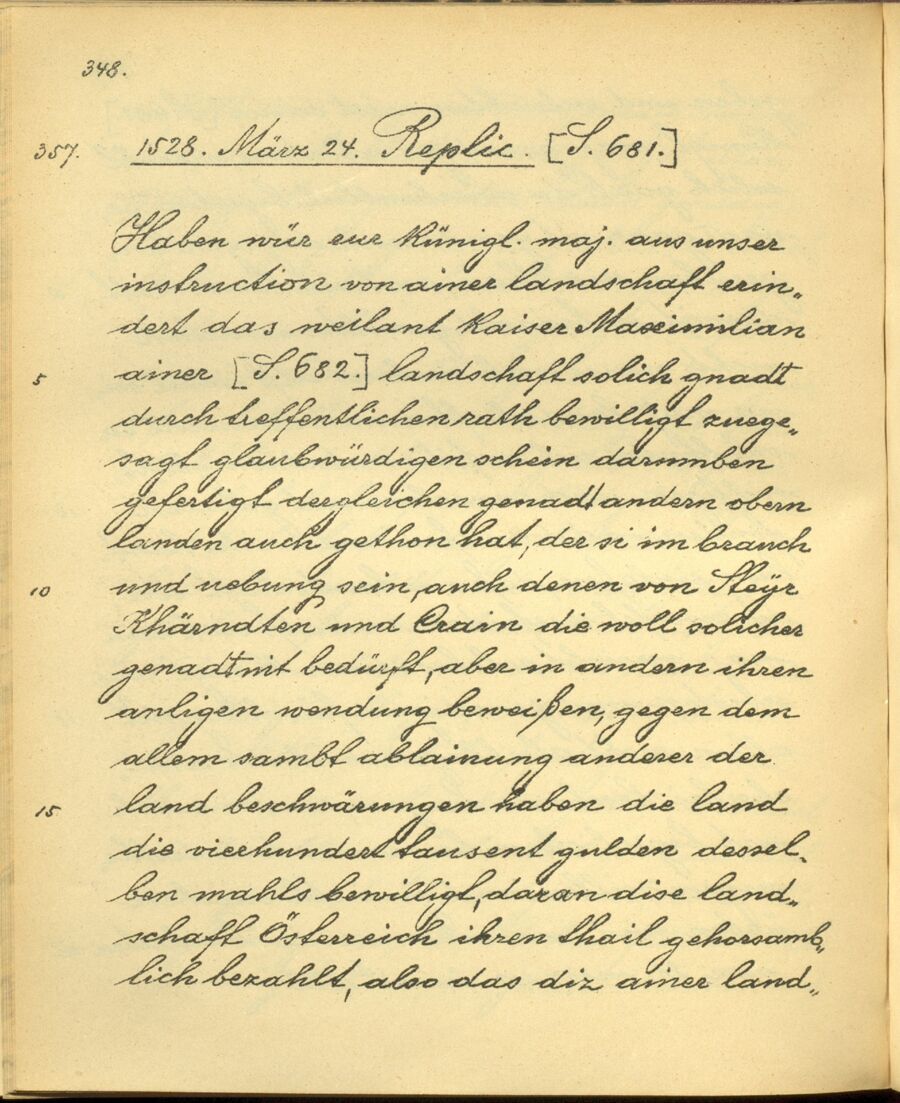 348.
357. 1528. März 24. Replic. [S. 681.]
Haben wür eur Künigl. maj. aus unser
instruction von ainer landschaft erin„
dert das weilant Kaiser Maximilian
5 ainer [S. 682.] landschaft solich gnadt
durch treffentlichen rath bewilligt zuege„
sagt glaubwürdigen schein darumben
gefertigt dergleichen genadt andern obern
landen auch gethon hat, der si im brauch
10 und uebung sein, auch denen von Steyr
Khärndten und Crain die woll solicher
genadt nit bedürft, aber in andern ihren
anligen wendung beweißen, gegen dem
allem sambt ablainung anderer der
15 land beschwärungen haben die land
die vierhundert tausent gulden dessel„
ben mahls bewilligt, daran dise land„
schaft Österreich ihren thail gehorsamb„
lich bezahlt, also das diz ainer land„